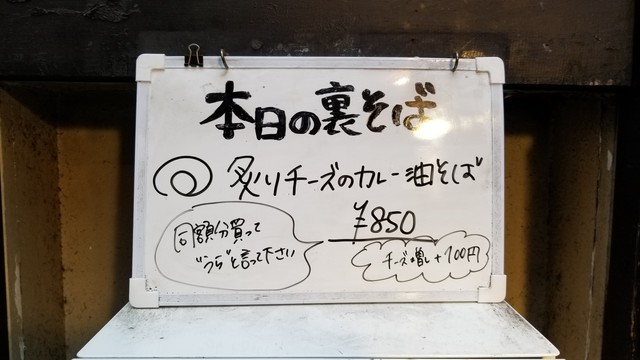 本日の裏そば
炙りチーズのカレー油そば
¥850
同額分買って
"うら"と言って下さい
チーズ増し+100円